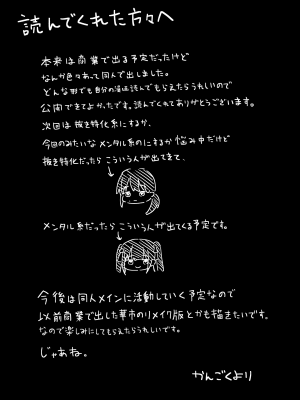 読んでくれた方々へ
本来は商業で出る予定だったけど
なんか色々あって同人で出しました。
どんな形でも自分の漫画読んでもらえたらうれしいので
公開できてよかったです。読んでくれてありがとうございます。
次回は抜き特化系にするか、
今回のみたいなメンタル系のにするか悩み中だけど
抜き特化だったらこういう人が出てきて、
メンタル系だったらこういう人が出てくる予定です。
今後は同人メインに活動していく予定なので
以前商業で出した華市のリメイク版とかも描きたいです。
なので楽しみにしてもらえたらうれしいです。
じゃあね。
かんごくより